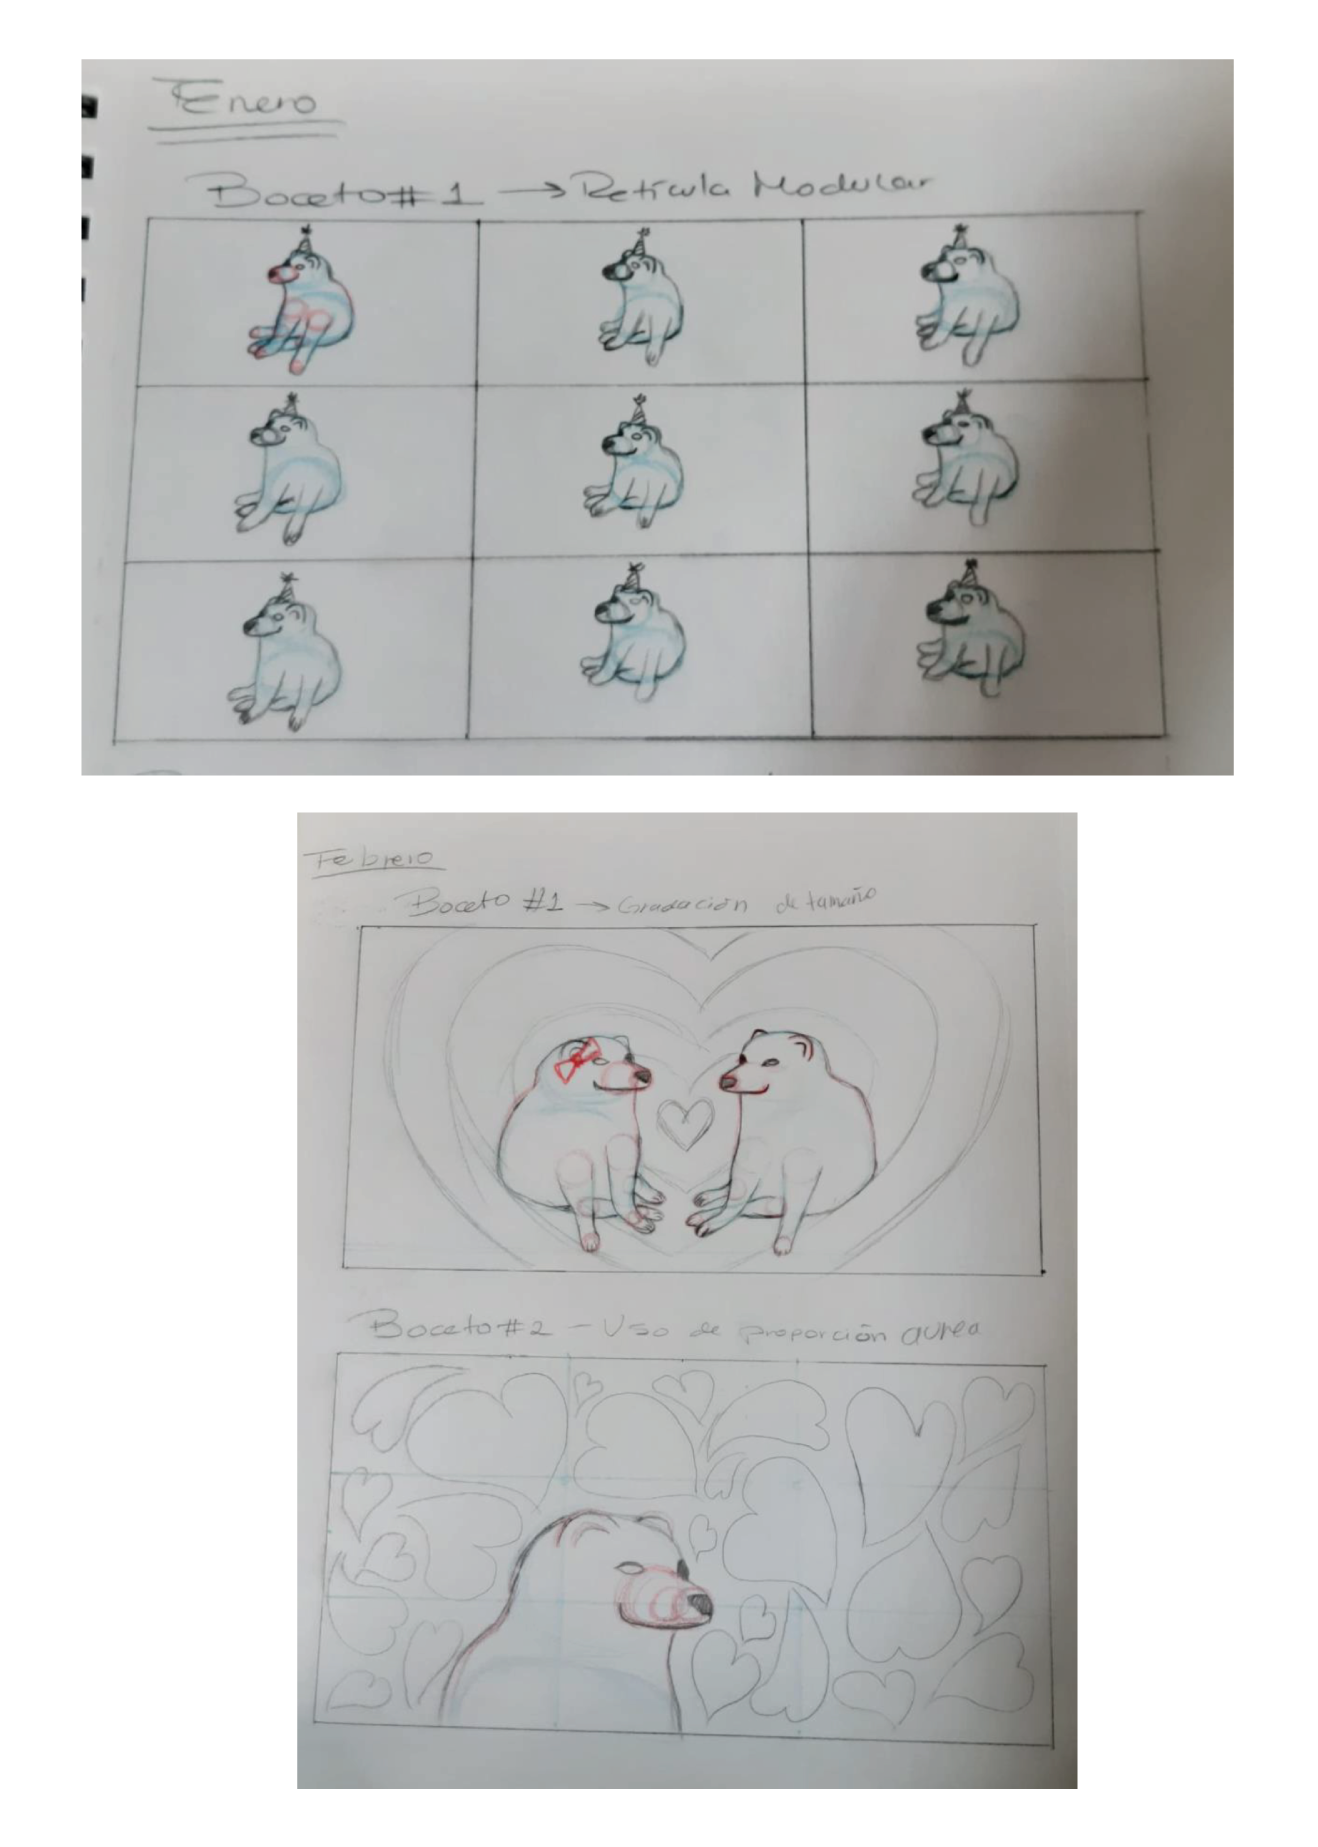 Enero
Boceto # 1 → Retícula Modular
Febrero
Boceto #1 → Gradación de tamaño
Boceto #2 - Uso de proporción aurea